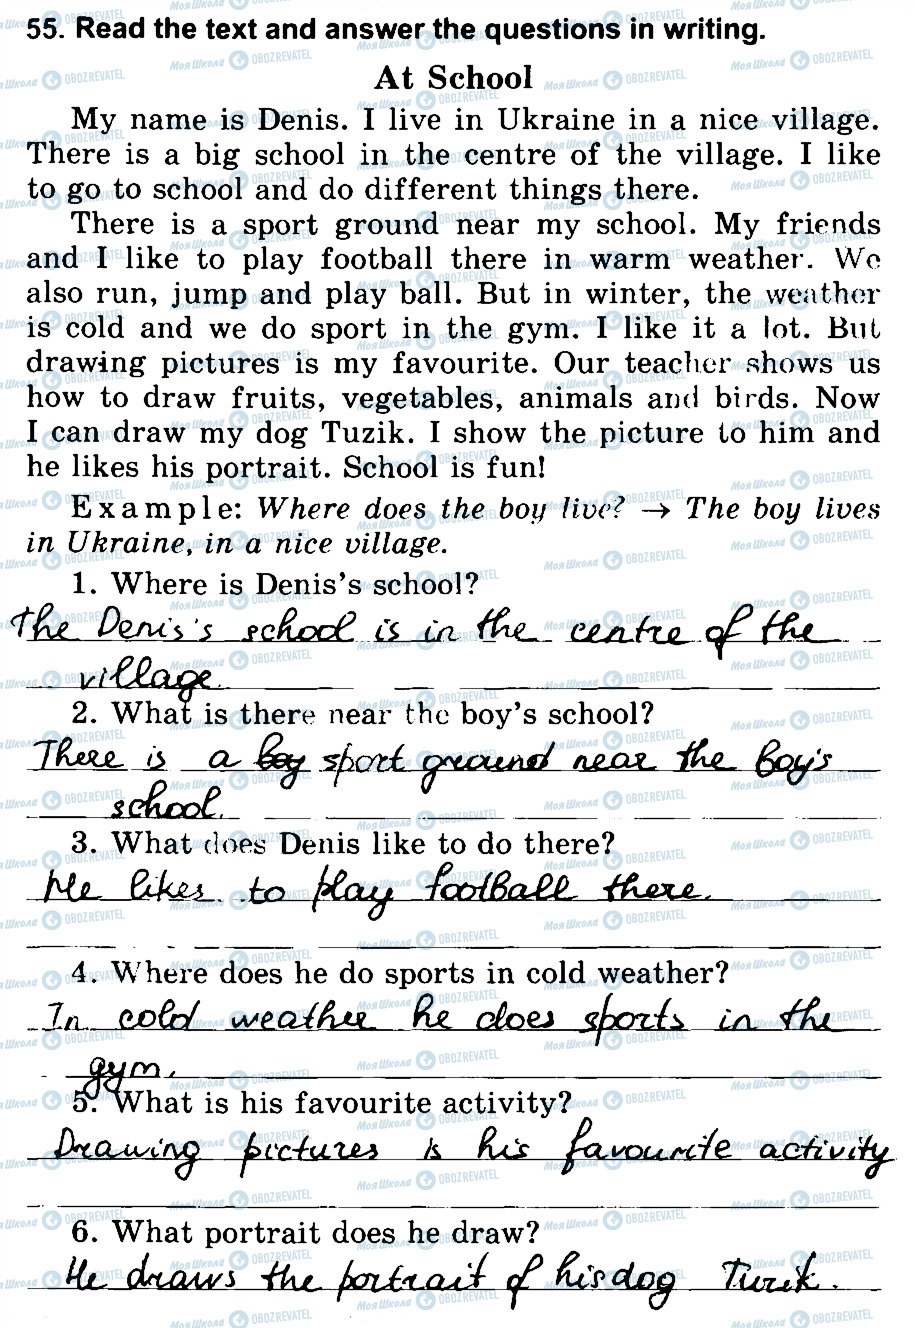 55. Read the text and answer the questions in writing.
At School
My name is Denis. I live in Ukraine in a nice village.
There is a big school in the centre of the village. I like
to go to school and do different things there.
There is a sport ground near my school. My friends
and I like to play football there in warm weather. We
also run, jump and play ball. But in winter, the weather
is cold and we do sport in the gym. I like it a lot. But
drawing pictures is my favourite. Our teacher shows us
how to draw fruits, vegetables, animals and birds. Now
I can draw my dog Tuzik. I show the picture to him and
he likes his portrait. School is fun!
Example: Where does the boy live? → The boy lives
in Ukraine, in a nice village.
1. Where is Denis's school?
The Denis's school is in the centre of the
village.
2. What is there near the boy's school?
There is a sport ground near the boy's
school.
3. What does Denis like to do there?
He likes to play football there.
4. Where does he do sports in cold weather?
In cold weather he does sports in the
gym.
5. What is his favourite activity?
Drawing pictures is his favourite activity
6. What portrait does he draw?
He draws the portrait of his dog Tuzik.
МояШкола OBOZREVATEL